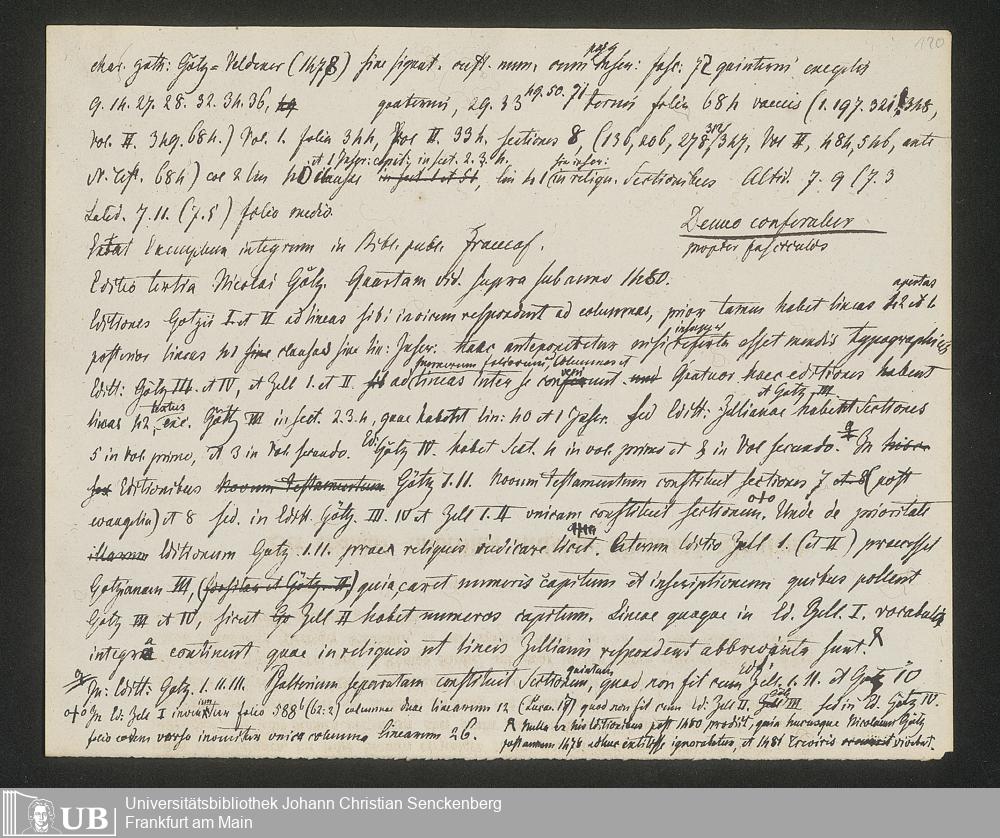 120
char. goth: Götz = Veldener (1478) sine signat. cust. num. cum
fasc: quinterni exceptis
9. 14. 27. 28. 32. 34. 36. quaterni, 29. 33 49. 50. 71 terni folia 684 vacuis (1. 197. 321. 348,
Vol. II. 349. 684.) Vol. 1. folia 344, Vol II. 334. sectiones 8, (136, 206, 278, 312, 347, Vol II, 484, 546, ante
et 1 Inscr: capit: in sect. 2. 3. 4.
684) col 2 lin clausae in reliqu. Sectionibus Altid. 7. 9 (7. 3
Latid. 7. 11. (7. 5) folio medio.
Denuo conferatur
propter fasciculos
Extat Exemplum integrum in Bibl. publ. Francof.
Editio tertia Nicolai Götz. Quartam vid. supra sub anno 1480.
apertas
Editiones Gotzii I et II ad lineas sibi invicem respondent ad columnas, prior tamen habet lineas 42 ad
insuper
posterior lineas clausas sine lin: Inscr: haec anteponeretur nisi referta esset mendis typographicis
numerum foliorum, columnas et
Editt: Götz III. et IV, et Zell I. et II. ad lineas inter se conveniunt. Quatuor haec editiones habent
et Götz III
lineas 42, exc. Götz III in sect. 2. 3. 4, quae habet lin: 40 et 1 Inscr. sed Editt: Zellianae habent Sectiones
5 in Vol. primo, et 3 in Vol. secundo. Ed: Götz IV. habet Sect. 4 in vol. primo et 3 in Vol secundo. In
Editionibus Novum Testamentum Götz I. II. Novum Testamentum constituit sectiones 7 et 8 (post
evangelia) et 8 sed. in Editt. Götz. III. IV et Zell I. II unicam constituit sectionem. Unde de prioritate
illarum Editionum Gotz I. II. prae reliquis judicare licet. Ceterum Editio Zell I. (et II) praecessit
Gotzianam III, (forsitan et Götz. II) quia caret numeris capitum et inscriptionum quibus pollent
Götz III et IV, sicut Zell II habet numeros capitum. Lineae quaque in Ed. Zell. I. vocabula
integra continent quae in reliquis ut lineis Zellianis respondent abbrevianda sunt.
quintam
In: Editt: Gotz. I. II. III. Psalterium separatam constituit Sectionem, quod non fit cum Edd. Zell. I. II. et Gotz IV
In Ed: Zell I invenitur folio 588b (62: 2) columnae duae linearum 12 quod non fit cum Ed: Zell II. Götz III. sed in Ed. Götz IV.
folio eodem verso invenitur unica columna linearum 26.
Nulla ex his Editionibus post 1480 prodiit, quia hucusque Nicolaum Götz
post annum 1478 adhuc extitisse ignorabatur, et 1481 Treviris vivebat.
UB
Universitätsbibliothek Johann Christian Senckenberg
Frankfurt am Main